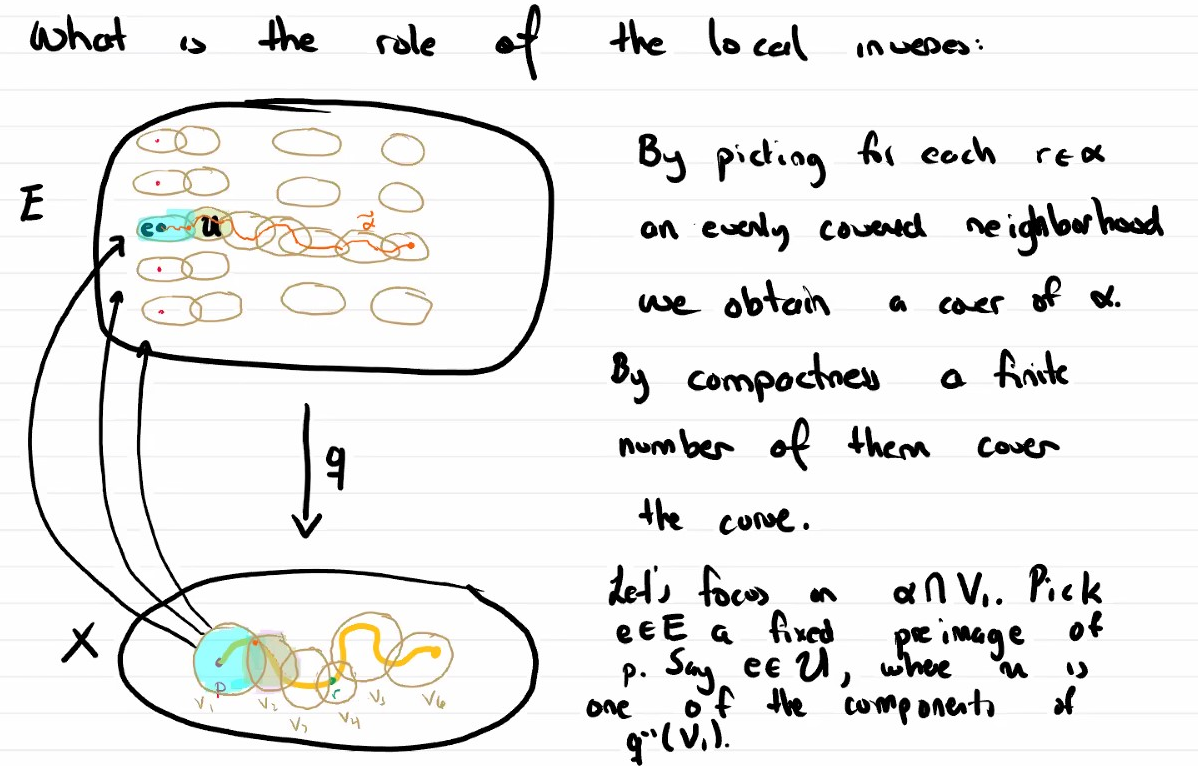 What is the role of the local inveses:
By picting for each r∈α
E
an evenly covered neighborhood
e U α̃
we obtain a cover of α.
By compactness a finite
number of them cover
q
the curve.
Let's focus on α∩V₁. Pick
X
e∈E a fixed preimage of
p. Say e∈U, where u is
p r
one of the components of
V₁ V₂ V₃ V₄ V₅ V₆
q⁻¹(V₁).